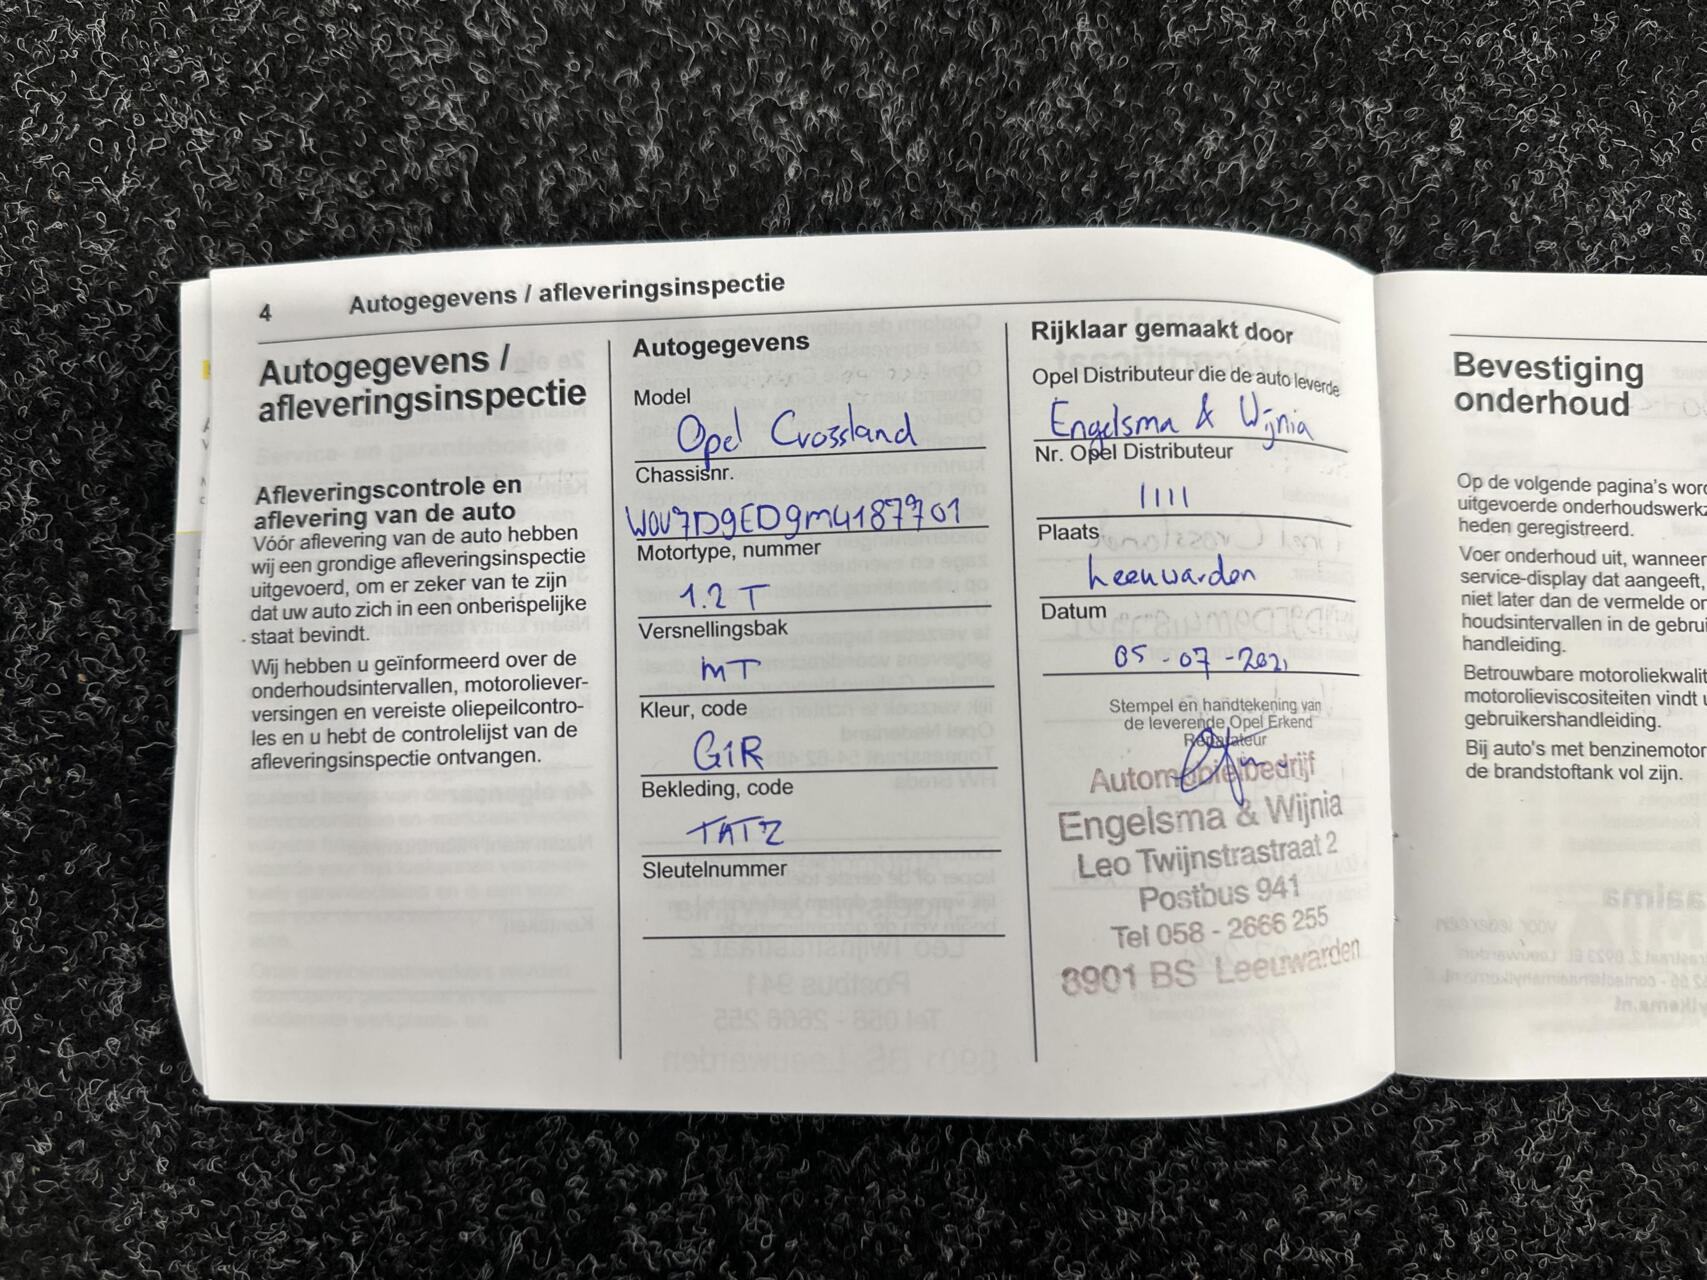 4 Autogegevens / afleveringsinspectie
Autogegevens /
afleveringsinspectie
Afleveringscontrole en
aflevering van de auto
Vóór aflevering van de auto hebben
wij een grondige afleveringsinspectie
uitgevoerd, om er zeker van te zijn
dat uw auto zich in een onberispelijke
staat bevindt.
Wij hebben u geïnformeerd over de
onderhoudsintervallen, motoroliever-
versingen en vereiste oliepeilcontro-
les en u hebt de controlelijst van de
afleveringsinspectie ontvangen.
Autogegevens
Model
Opel Crossland
Chassisnr.
W0V7D9ED9M4187701
Motortype, nummer
1.2 T
Versnellingsbak
MT
Kleur, code
G1R
Bekleding, code
TATZ
Sleutelnummer
Rijklaar gemaakt door
Opel Distributeur die de auto leverde
Engelsma & Wijnia
Nr. Opel Distributeur
1111
Plaats
Leeuwarden
Datum
05-07-2021
Stempel en handtekening van
de leverende Opel Erkend
Reparateur
Automobielbedrijf
Engelsma & Wijnia
Leo Twijnstrastraat 2
Postbus 941
Tel 058 - 2666 255
8901 BS Leeuwarden
Bevestiging
onderhoud
Op de volgende pagina's
uitgevoerde
heden geregistreerd.
Voer onderhoud uit, wanneer
service-display dat aangeeft,
niet later dan de vermelde
houdsintervallen in de
handleiding.
Betrouwbare
motorolieviscositeiten vindt
gebruikershandleiding.
Bij auto's met benzinemotor
de brandstoftank vol zijn.